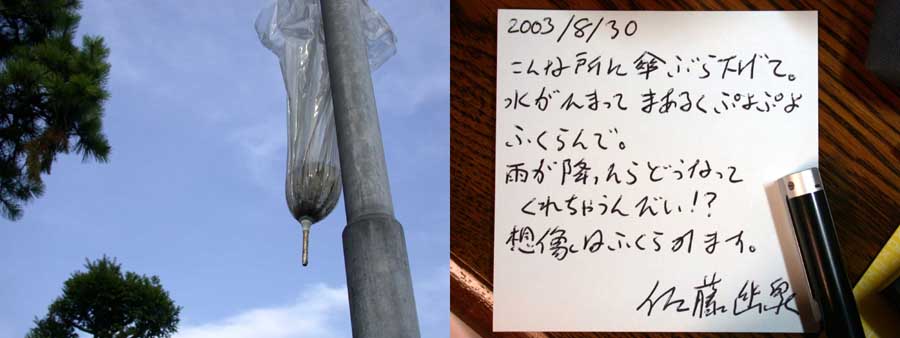 2003/8/30
こんな所に傘ぶら下げて。
水がたまって まあるくぷよぷよ
ふくらんで。
雨が降ったらどうなって
くれちゃうんだい!?
想像はふくらみます。
佐藤